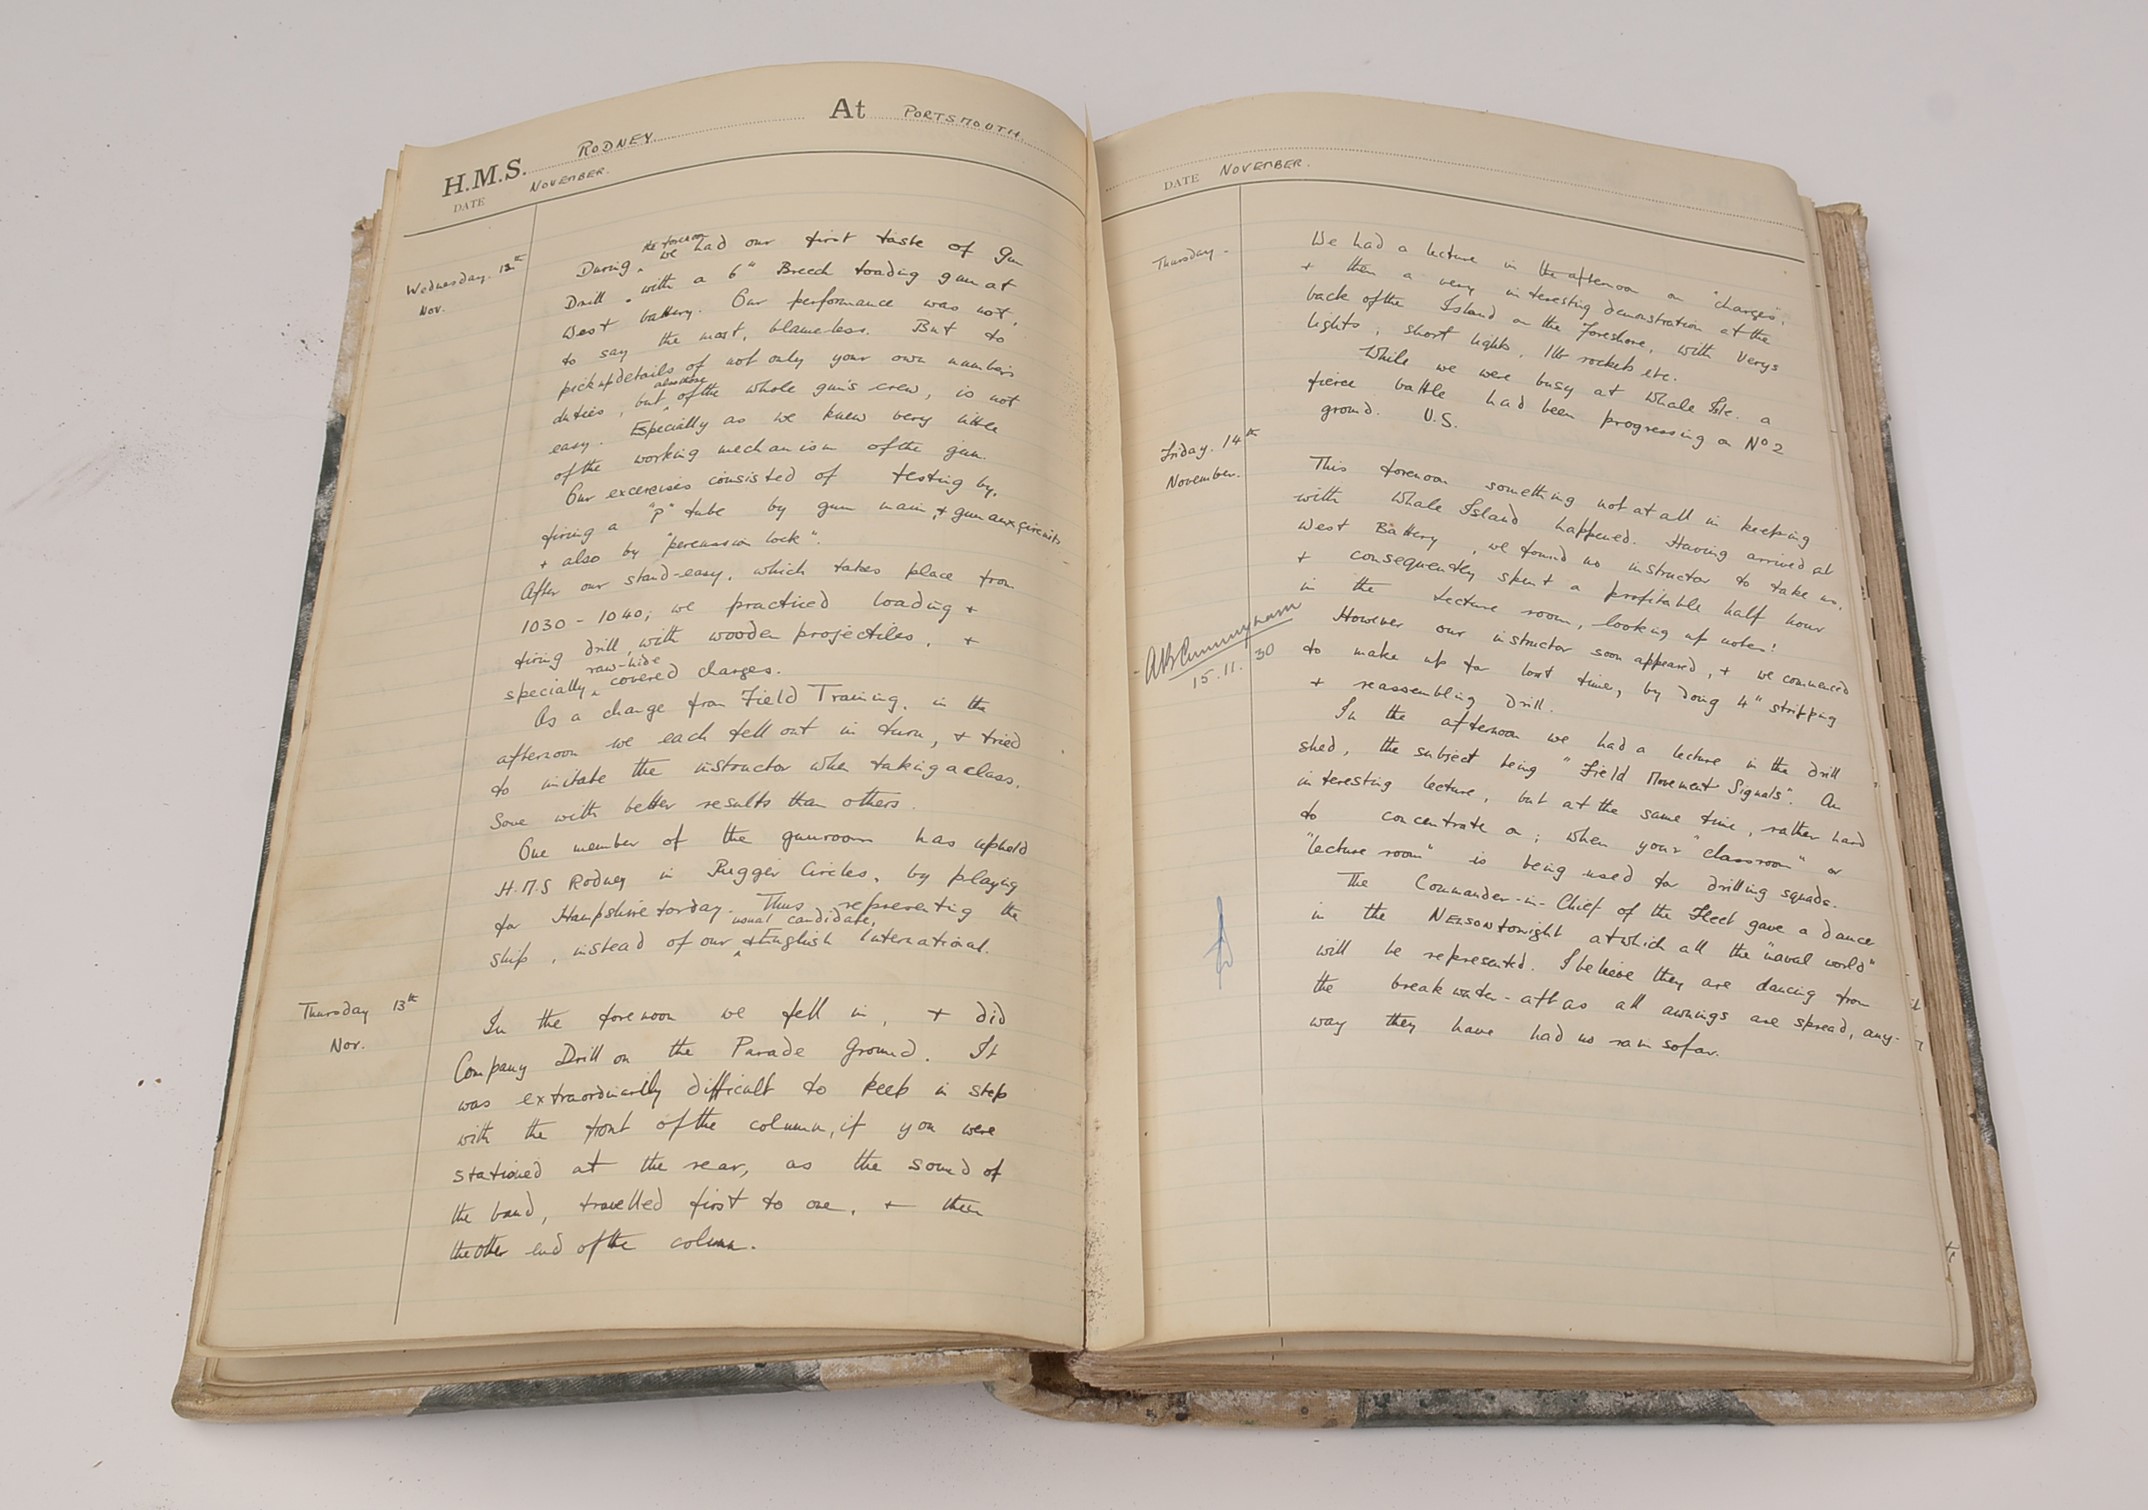 H.M.S. RODNEY At PORTSMOUTH.
DATE NOVEMBER.
Wednesday. 12th
Nov.
the forenoon
During ‸ we had our first taste of Gun
Drill with a 6" Breech Loading gun at
West battery. Our performance was not,
to say the most, blameless. But to
pick up details of not only your own numbers
also those
duties, but ‸ of the whole gun's crew, is not
easy. Especially as we knew very little
of the working mechanism of the gun.
Our excercises consisted of testing by,
firing a "P" tube by gun main, + gun aux circuits
+ also by "percussion lock".
After our stand-easy, which takes place from
1030 - 1040; we practiced loading +
firing drill, with wooden projectiles, +
raw-hide
specially ‸ covered charges.
As a change from Field Training, in the
afternoon we each fell out in turn, + tried
to imitate the instructor when taking a class.
Some with better results than others.
One member of the gunroom has upheld
H.M.S Rodney in Rugger Circles, by playing
for Hampshire today. Thus representing the
usual candidate,
ship, instead of our ‸ English International.
Thursday 13th
Nov.
In the forenoon we fell in, + did
Company Drill on the Parade Ground. It
was extraordinarily difficult to keep in step
with the front of the column, if you were
stationed at the rear, as the sound of
the band, travelled first to one, + then
the other end of the column.
DATE NOVEMBER.
Thursday -
We had a lecture in the afternoon on "charges",
+ then a very interesting demonstration at the
back of the Island on the foreshore, with Verys
lights, short lights, 1lb rockets etc.
While we were busy at Whale Isle. a
fierce battle had been progressing on No 2
ground. U.S.
Friday. 14th
November.
This forenoon something not at all in keeping
with Whale Island happened. Having arrived at
West Battery, we found no instructor to take us,
+ consequently spent a profitable half hour
in the lecture room, looking up notes!
However our instructor soon appeared, + we commenced
to make up for lost time, by doing 4" stripping
+ reassembling drill.
ABCunningham
15.11.30
In the afternoon we had a lecture in the drill
shed, the subject being "Field Movement Signals". An
interesting lecture, but at the same time, rather hard
to concentrate on; when your "classroom" or
"lecture room" is being used for drilling squads.
The Commander-in-Chief of the Fleet gave a dance
in the NELSON tonight at which all the "naval world"
will be represented. I believe they are dancing from
the breakwater - aft as all awnings are spread, any-
way they have had no rain so far.